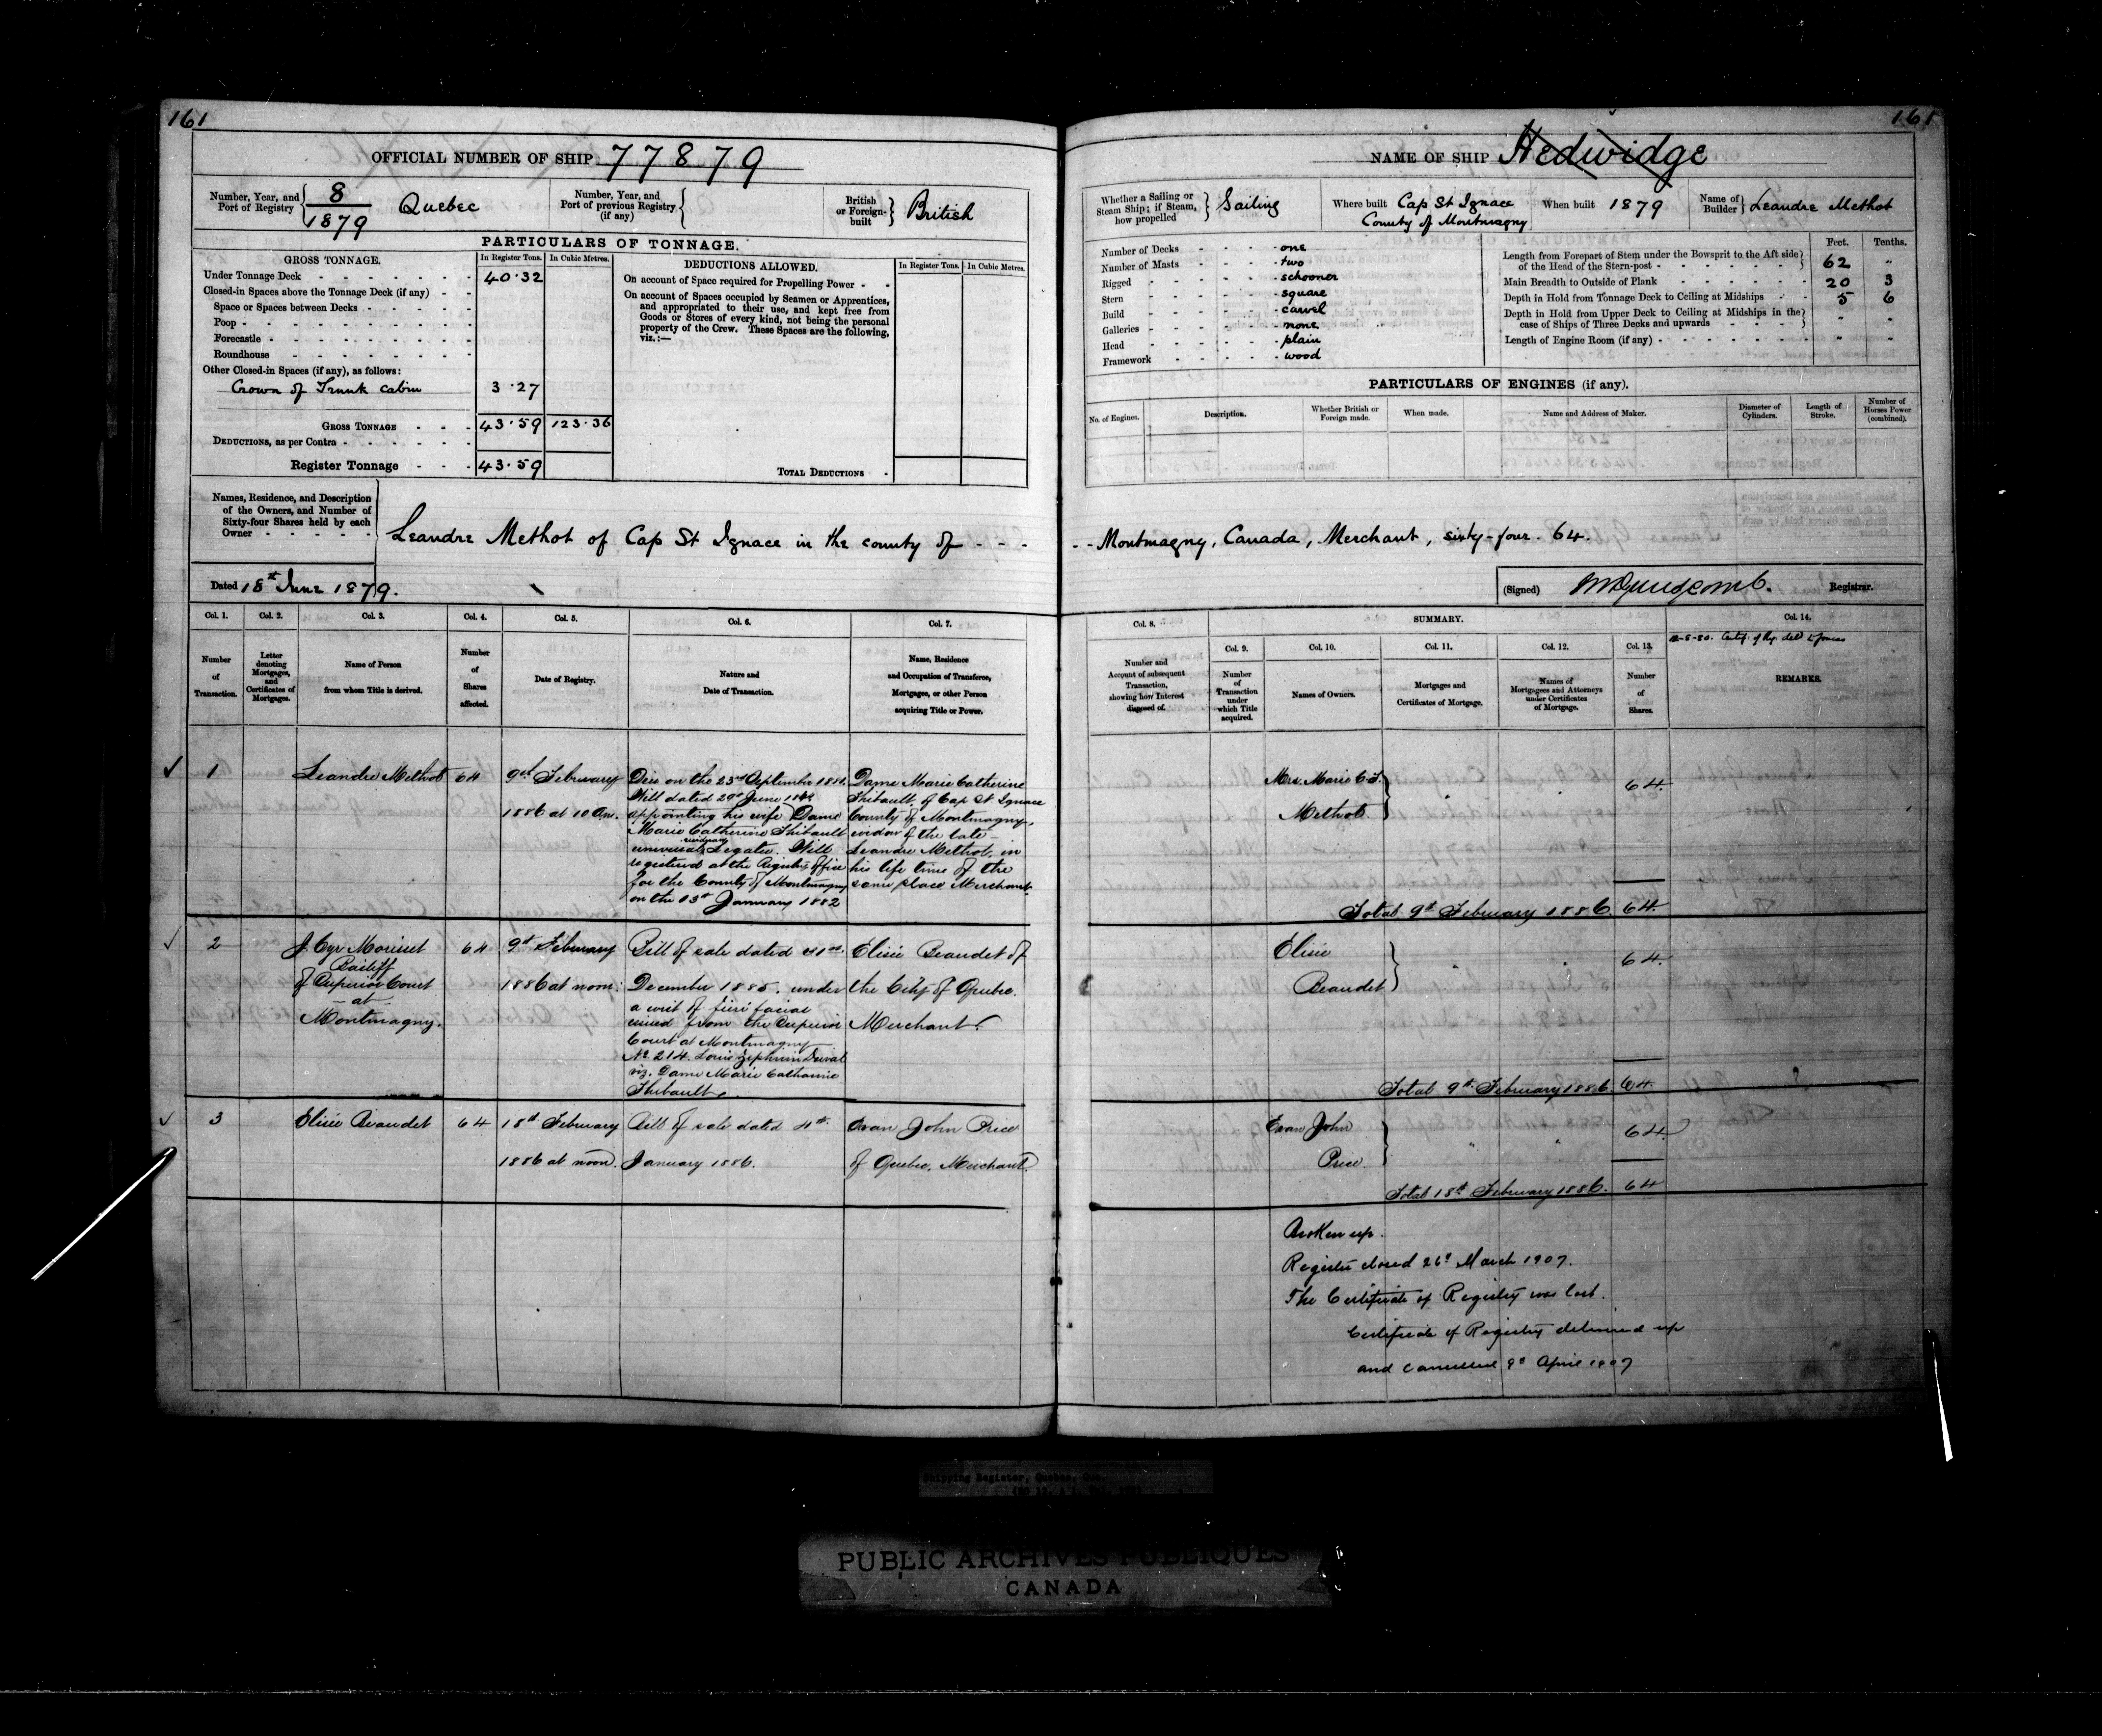 161
OFFICIAL NUMBER OF SHIP 77879
Number, Year, and Port of Registry { 8/1879 Quebec
Number, Year, and Port of previous Registry (if any) {
British or Foreign-built } British
PARTICULARS OF TONNAGE.
GROSS TONNAGE. In Register Tons. In Cubic Metres.
Under Tonnage Deck 40.32
Closed-in Spaces above the Tonnage Deck (if any)
Space or Spaces between Decks
Poop
Forecastle
Roundhouse
Other Closed-in Spaces (if any), as follows:
Crown of Trunk Cabin 3.27
GROSS TONNAGE 43.59 123.36
DEDUCTIONS, as per Contra
Register Tonnage 43.59
DEDUCTIONS ALLOWED. In Register Tons. In Cubic Metres.
On account of Space required for Propelling Power
On account of Spaces occupied by Seamen or Apprentices,
and appropriated to their use, and kept free from
Goods or Stores of every kind, not being the personal
property of the Crew. These Spaces are the following,
viz.:—
TOTAL DEDUCTIONS
Names, Residence, and Description
of the Owners, and Number of
Sixty-four Shares held by each
Owner
Leandre Methot of Cap St Ignace in the county of - - -
Dated 18th June 1879.
Col. 1. Col. 2. Col. 3. Col. 4. Col. 5. Col. 6. Col. 7.
Number of Transaction.
Letter denoting Mortgages, and Certificates of Mortgages.
Name of Person from whom Title is derived.
Number of Shares affected.
Date of Registry.
Nature and Date of Transaction.
Name, Residence and Occupation of Transferee, Mortgagee, or other Person acquiring Title or Power.
1 Leandre Methot 64
9th February
1886 at 10 Am.
Died on the 23rd September 1881.
Will dated 29th June
appointing his wife Dame
Marie Catherine Thibault
universal residuary Legatee. Will
registered at the Registry Office
for the County of Montmagny
on the 13th January 1882
Dame Marie Catherine
Thibault, of Cap St Ignace
County of Montmagny,
widow of the late
Leandre Methot, in
his life time of the
same place Merchant.
2 J. Cyr Morisset
Bailiff
of Superior Court
- at -
Montmagny.
64
9th February
1886 at noon.
Bill of sale dated 31st
December 1885. under
a writ of fieri facias
issued from the Superior
Court at Montmagny
No 214. Louis Zephirin Duval
viz. Dame Marie Catherine
Thibault.
Elisée Beaudet of
the City of Quebec.
Merchant.
3 Elisée Beaudet 64
18th February
1886 at noon.
Bill of sale dated 4th
January 1886.
Evan John Price
of Quebec, Merchant
161
NAME OF SHIP Hedwidge
Whether a Sailing or Steam Ship; if Steam, how propelled } Sailing
Where built Cap St Ignace
County of Montmagny
When built 1879
Name of Builder } Leandre Methot
Number of Decks one
Number of Masts two
Rigged schooner
Stern square
Build carvel
Galleries none
Head plain
Framework wood
Feet. Tenths.
Length from Forepart of Stem under the Bowsprit to the Aft side
of the Head of the Stern-post 62 "
Main Breadth to Outside of Plank 20 3
Depth in Hold from Tonnage Deck to Ceiling at Midships 5 6
Depth in Hold from Upper Deck to Ceiling at Midships in the
case of Ships of Three Decks and upwards " "
Length of Engine Room (if any) " "
PARTICULARS OF ENGINES (if any).
No. of Engines. Description. Whether British or Foreign made. When made. Name and Address of Maker. Diameter of Cylinders. Length of Stroke. Number of Horses Power (combined).
- - Montmagny, Canada, Merchant, sixty-four. 64.
(Signed) Registrar.
Col. 8. SUMMARY. Col. 14.
Col. 9. Col. 10. Col. 11. Col. 12. Col. 13.
Number and Account of subsequent Transaction, showing how Interest disposed of.
Number of Transaction under which Title acquired.
Names of Owners.
Mortgages and Certificates of Mortgage.
Names of Mortgagees and Attorneys under Certificates of Mortgage.
Number of Shares.
REMARKS.
Mrs. Marie C. T.
Methot } " " 64.
Total 9th February 1886. 64.
Elisée
Beaudet } " " 64.
Total 9th February 1886. 64.
Evan John
Price } " " 64.
Total 18th February 1886. 64
Broken up.
Registry closed 26th March 1907.
The Certificate of Registry was lost.
Certificate of Registry delivered up
and cancelled 9th April 1907
Shipping Register, Quebec, Que.
PUBLIC ARCHIVES PUBLIQUES
CANADA